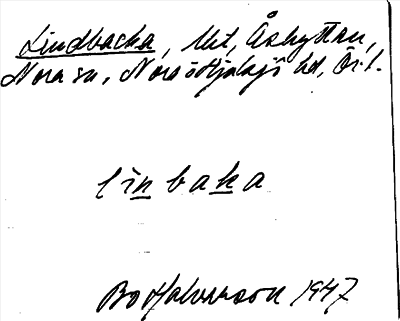 Lindbacka, Utt, Åshyttan,
Nora sn, Nora o Hjulsjö hd, Ör. l.
lìn baka
Bo Halvarsson 1947